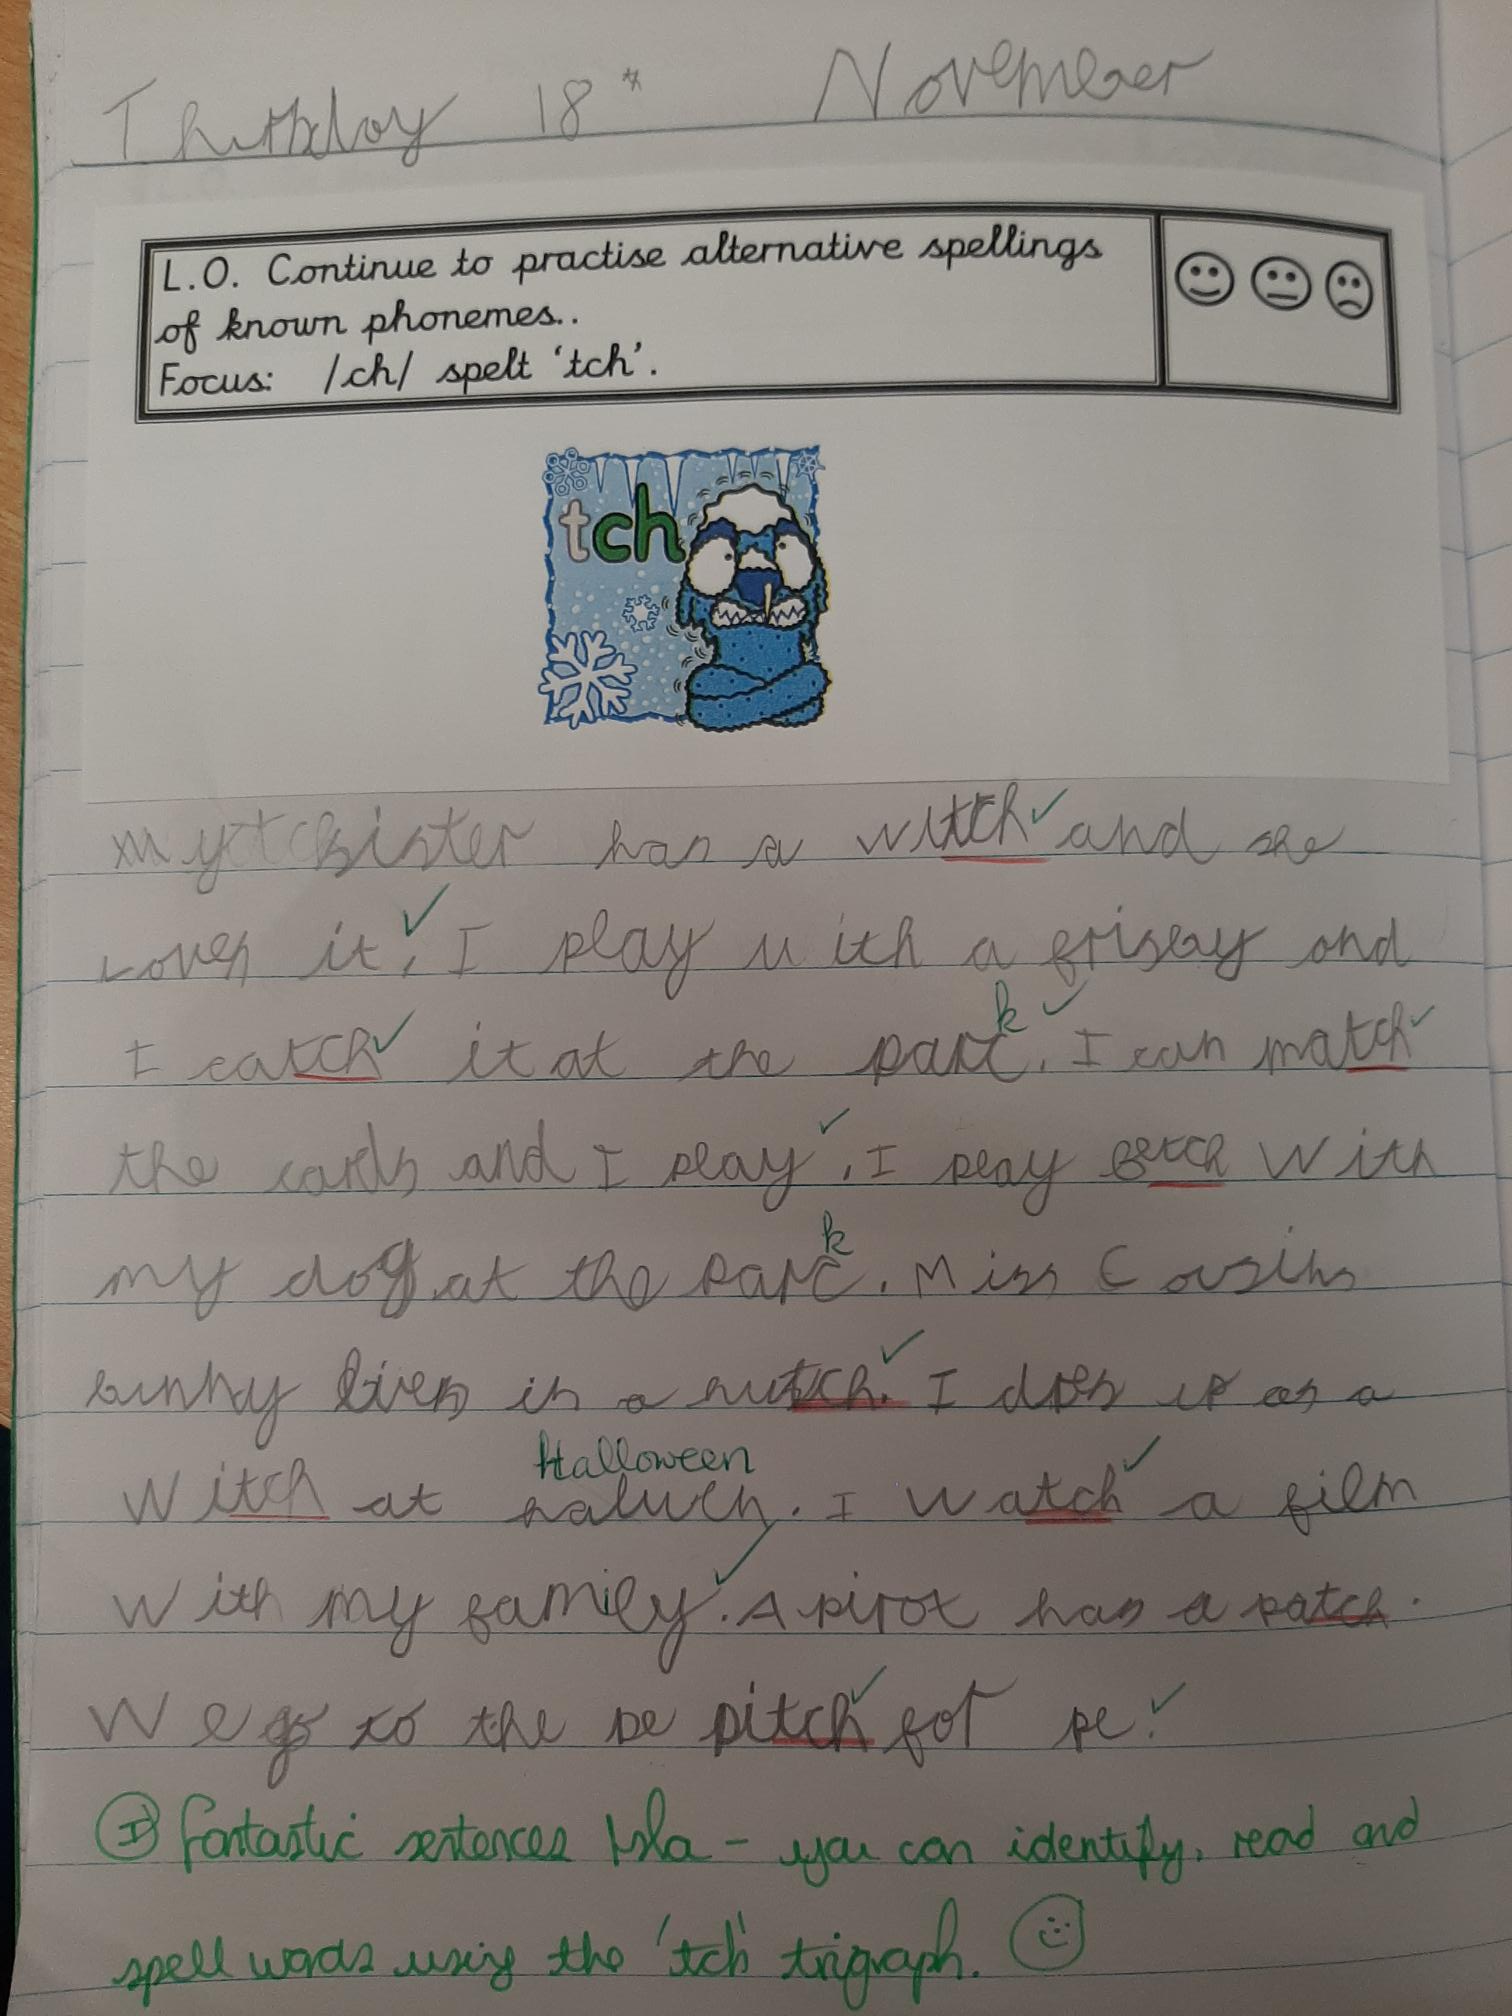 Thursday 18th November
L.O. Continue to practise alternative spellings
of known phonemes..
Focus: /ch/ spelt 'tch'.
tch
my sister has a witch and she
loves it. I play with a frisby and
I catch it at the parc. I can match
k
the cards and I play. I play fetch with
my dog at the parc. Miss Cousins
k
bunny lives in a hutch. I dres up as a
Witch at haluwen. I watch a film
Halloween
with my family. A pirot has a patch.
We go to the pe pitch for pe.
I fantastic sentences Isla - you can identify, read and
spell words using the 'tch' trigraph.